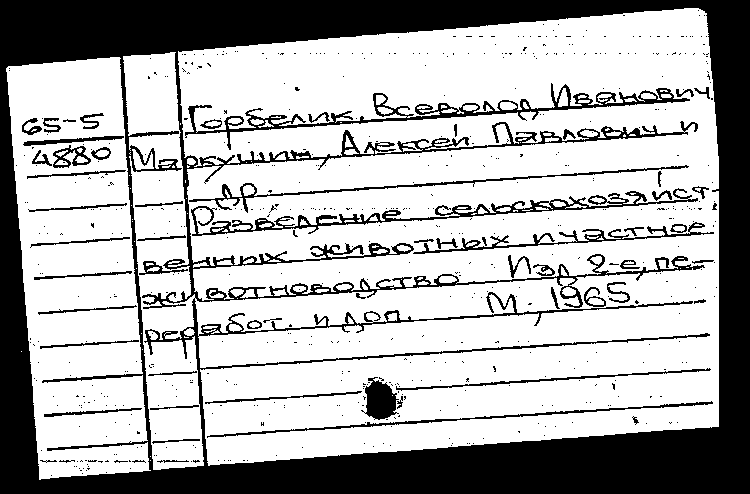 65-5
4880
Горбелик, Всеволод Иванович
Маркушин, Алексей Павлович и
др.
Разведение сельскохозяйст-
венных животных и частное
животноводство Изд 2-е, пе-
реработ. и доп. М., 1965.